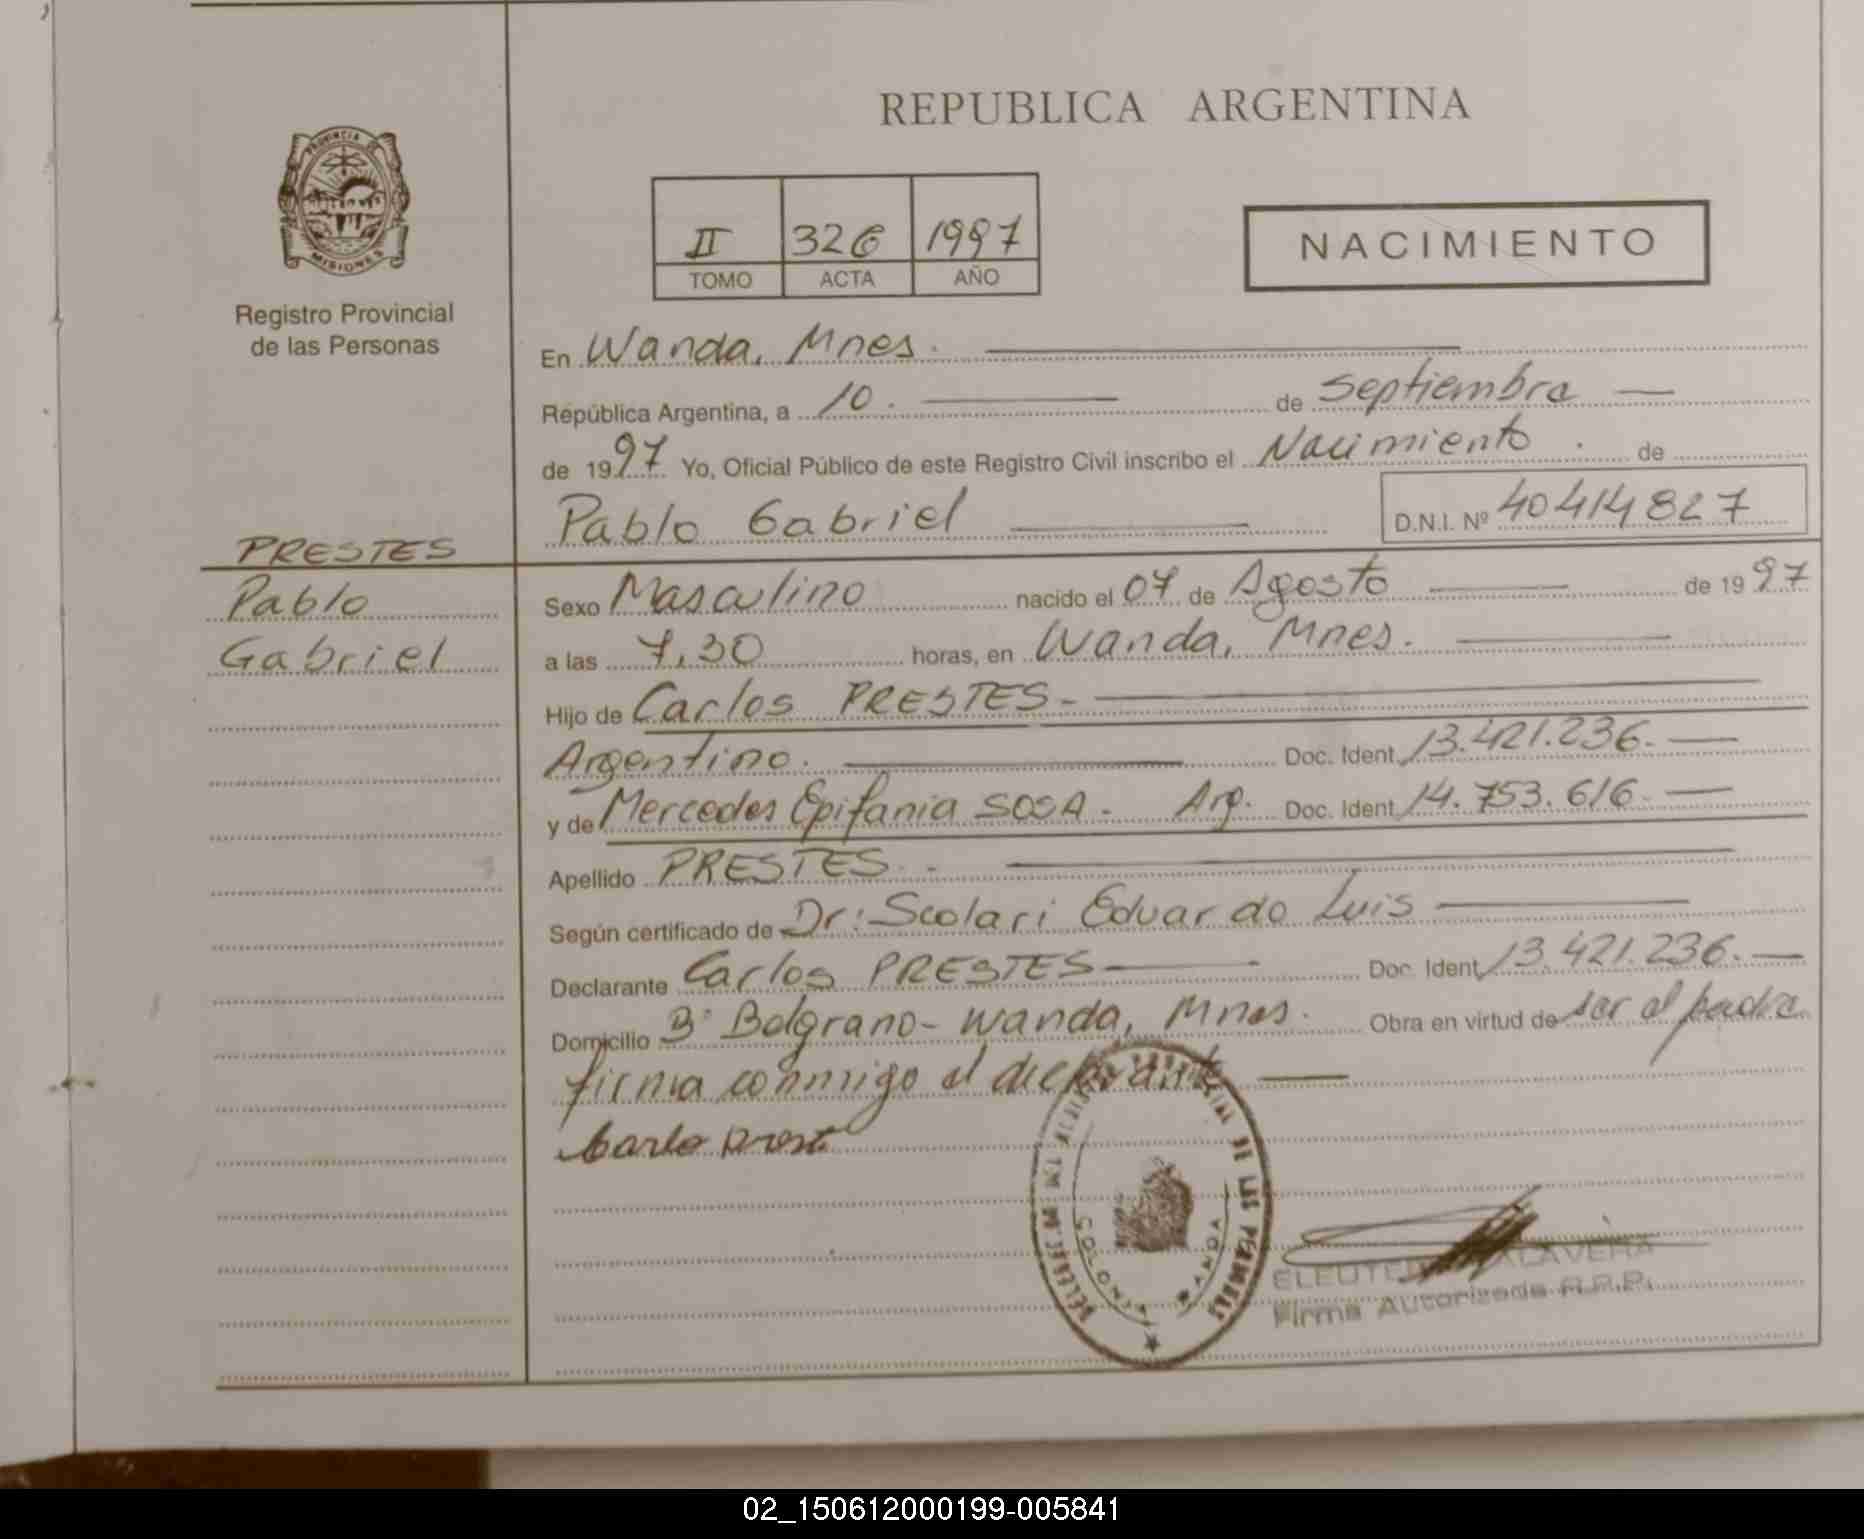 REPUBLICA ARGENTINA
PROVINCIA DE
MISIONES
Registro Provincial
de las Personas
II 326 1997
TOMO ACTA AÑO
NACIMIENTO
En Wanda, Mnes.
República Argentina, a 10. de septiembre
de 1997 Yo, Oficial Público de este Registro Civil inscribo el Nacimiento. de
Pablo Gabriel D.N.I. Nº 40414827
PRESTES
Pablo
Gabriel
Sexo Masculino nacido el 07 de Agosto de 1997
a las 7,30 horas, en Wanda, Mnes.
Hijo de Carlos PRESTES-
Argentino. Doc. Ident. 13.421.236.-
y de Mercedes Epifania SOSA- Arg. Doc. Ident. 14.753.616.-
Apellido PRESTES.-
Según certificado de Dr: Scolari Eduardo Luis
Declarante Carlos PRESTES Doc. Ident. 13.421.236.-
Domicilio Bº Belgrano- Wanda, Mnes. Obra en virtud de ser el padre
firma conmigo el declarante
Carlo prest
DE LAS PERSONAS
COLONIA WANDA
ALAVERA
Firma Autorizada R.P.P.
02_150612000199-005841